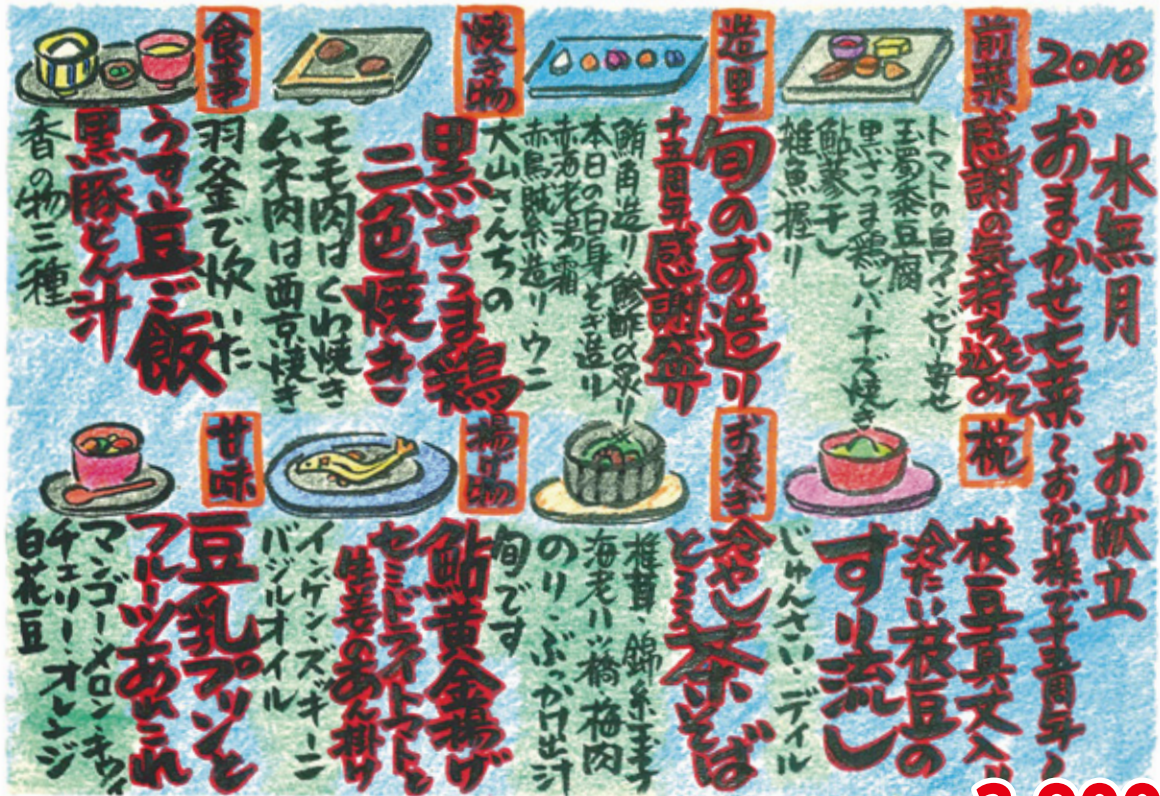 2018
水無月
お献立
おまかせ七菜
〜おかげ様で十五周年〜
前菜
感謝の気持ちを込めて
トマトの白ワインゼリー寄せ
玉蜀黍豆腐
黒さつま鶏レバーチーズ焼き
鮎蓼干し
雑魚握り
造里
旬のお造り
十五周年感謝盛り
鮪角造り・鯵酢の炙り
本日の白身そぎ造り
赤海老湯霜
赤烏賊糸造り・ウニ
焼き物
大山さんちの
黒さつま鶏
二色焼き
モモ肉はくわ焼き
ムネ肉は西京焼き
食事
羽釜で炊いた
うすい豆ご飯
黒豚とん汁
香の物三種
椀
枝豆真丈入り
冷たい枝豆の
すり流し
じゅんさい・ディル
お凌ぎ
冷やし茶そば
椎茸・錦糸玉子
海老・八ッ橋・梅肉
のり・ぶっかけ出汁
揚げ物
旬です
鮎黄金揚げ
セミドライトマトと
生姜のあん掛け
インゲン・ズッキーニ
バジルオイル
甘味
豆乳プリンと
フルーツあれこれ
マンゴー・メロン・キウイ
チェリー・オレンジ
白花豆